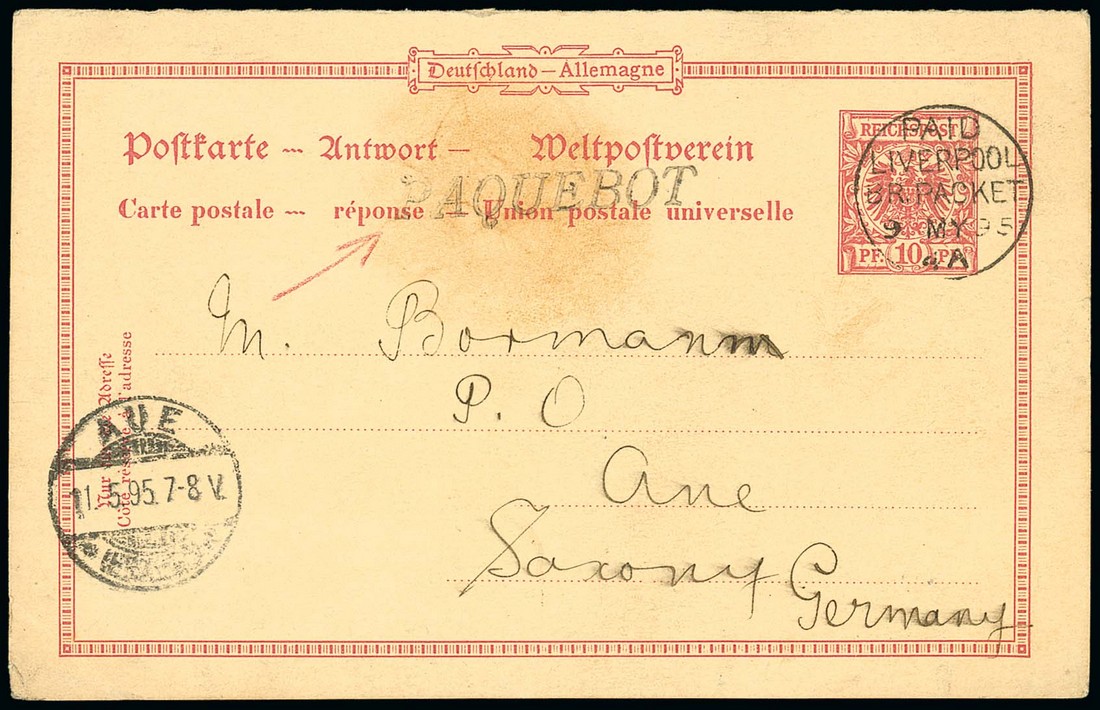 Deutschland – Allemagne
Postkarte – Antwort – Weltpostverein
PAQUEBOT
Carte postale – réponse – Union postale universelle
REICHSPOST
PF. 10 PF.
PAID
LIVERPOOL
BR. PACKET
9 MY 95
4A
M. Bormann
P. O
Aue
Saxony Germany
Nur für die Adresse
Côté réservé à l'adresse
AUE
11.5.95.7-8 V.